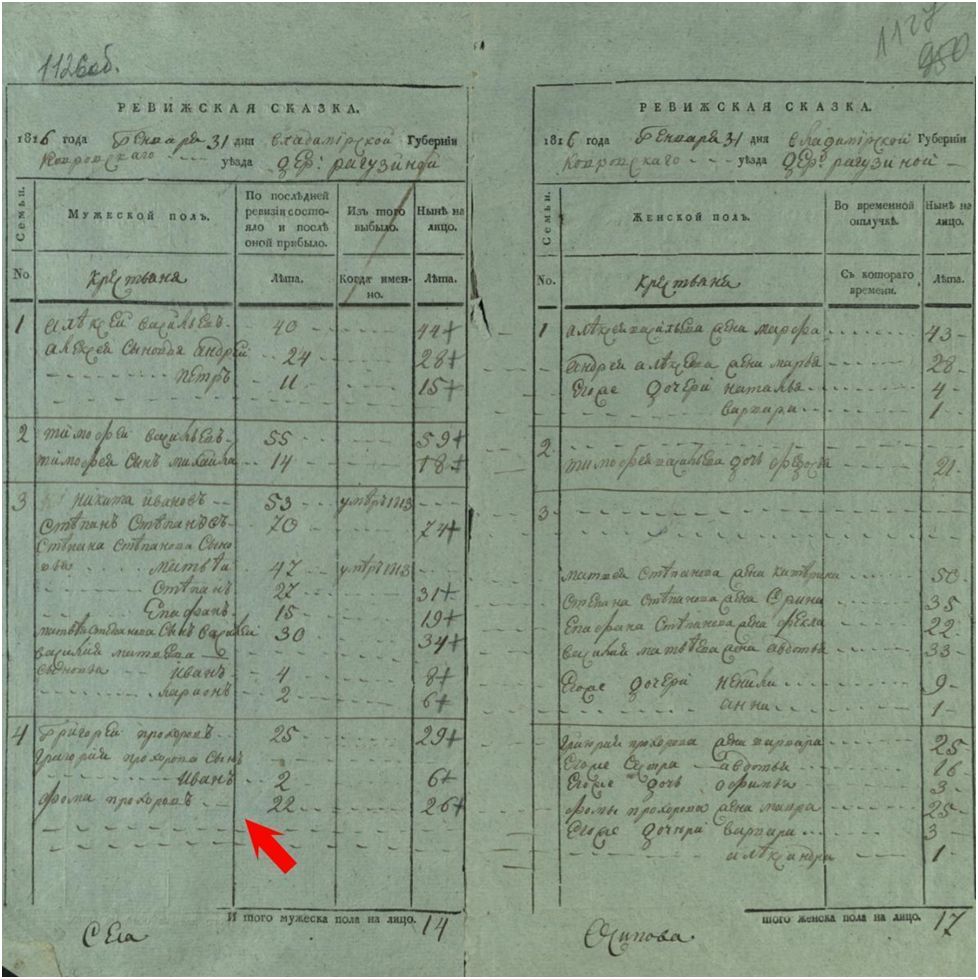 1126об.
1127
950
РЕВИЖСКАЯ СКАЗКА.
1816 года Генваря 31 дня Владимирской Губернїи
Ковровскаго уѣзда Дер: рагузиной
Семьи.
Мужеской полъ.
По послѣдней ревизїи состояло и послѣ оной прибыло.
Изъ того выбыло.
Нынѣ на лицо.
No
Крестьяня
Лѣта.
Когда именно.
Лѣта.
1 алѣксей васильевъ 40 44
алексея сыновья андрей 24 28
пётръ 11 15
2 тимофей васильевъ 55 59
тимофея сынъ михайла 14 18
3 никита ивановъ 53 умѣръ 1813
стѣпанъ Стѣпановъ 70 74
Стѣпана Стѣпанова Сыно
вья матвѣй 47 умѣръ 1813
Стѣпанъ 27 31
Епафанъ 15 19
матвѣя степанова Сынъ василей 30 34
василия матвѣева
сыновья иванъ 4 8
ларионъ 2 6
4 Григорей прохоровъ 25 29
григория прохорова Сынъ
Иванъ 2 6
фома прохоровъ 22 26
И того мужеска пола на лицо. 14
С Ела
РЕВИЖСКАЯ СКАЗКА.
1816 года Генваря 31 дня Владимирской Губернїи
Ковровскаго уѣзда Дер: рагузиной
Семьи.
Женской полъ.
Во временной отлучкѣ.
Нынѣ на лицо.
No.
Крестьяня
Съ котораго времени.
Лѣта.
1 алѣксея васильева жена марфа 43
андрея алѣксева жена марья 28
Егоже дочери наталья 4
варвара 1
2
тимофея васильева дочь федосья 21
3
матвея Стѣпанова жена катѣрина 50
Стѣпана Стѣпанова жена Ирина 35
Епафана Стѣпанова жена фекла 22
василия матвѣева жена авдотья 33
Егоже дочери ненила 9
анна 1
4 григория прохорова жена варвара 25
Егоже Сестра авдотья 16
Егоже дочь офимья 3
фомы прохорова жена мавра 25
Егоже дочери варвара 3
алѣксандра 1
того женска пола на лицо. 17
Осипова